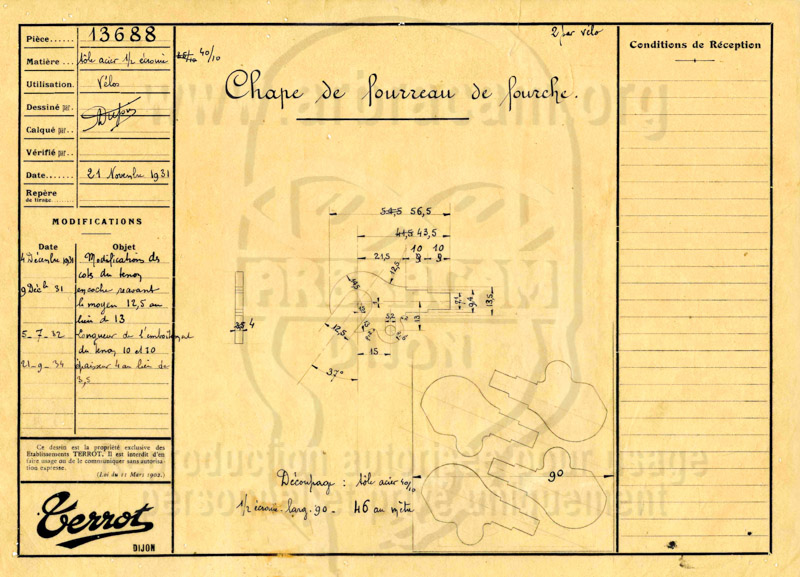 Pièce...... 13688
Matière... tôle acier 1/2 écrouie 40/10
Utilisation. Vélos
Dessiné par.
Calqué par..
Vérifié par..
Date....... 21 Novembre 1931
Repère
de tirage
MODIFICATIONS
Date Objet
4 Décembre 1931 Modifications des
cots du tenon
9 Déc 31 encoche recevant
le moyeu 12,5 au
lieu d 13
5-7-32 Longueur de l'emboitement
du tenon 10 et 10
21-9-34 épaisseur 4 au lieu de
3,5
Ce dessin est la propriété exclusive des
Etablissements TERROT. Il est interdit d'en
faire usage ou de le communiquer sans autorisa-
tion expresse.
(Loi du 11 Mars 1902.)
Terrot
DIJON
2 par vélo
Chape de fourreau de fourche.
54,5 56,5
41,5 43,5
10 10
21,5 9 9
12,5
3,5 4
12,5
13
13,5
15
37°
90
Découpage : tôle acier 40/10
1/2 écrouie larg. 90 - 46 au mètre
Conditions de Réception
www.arbracam.org
ARBRACAM
DIJON